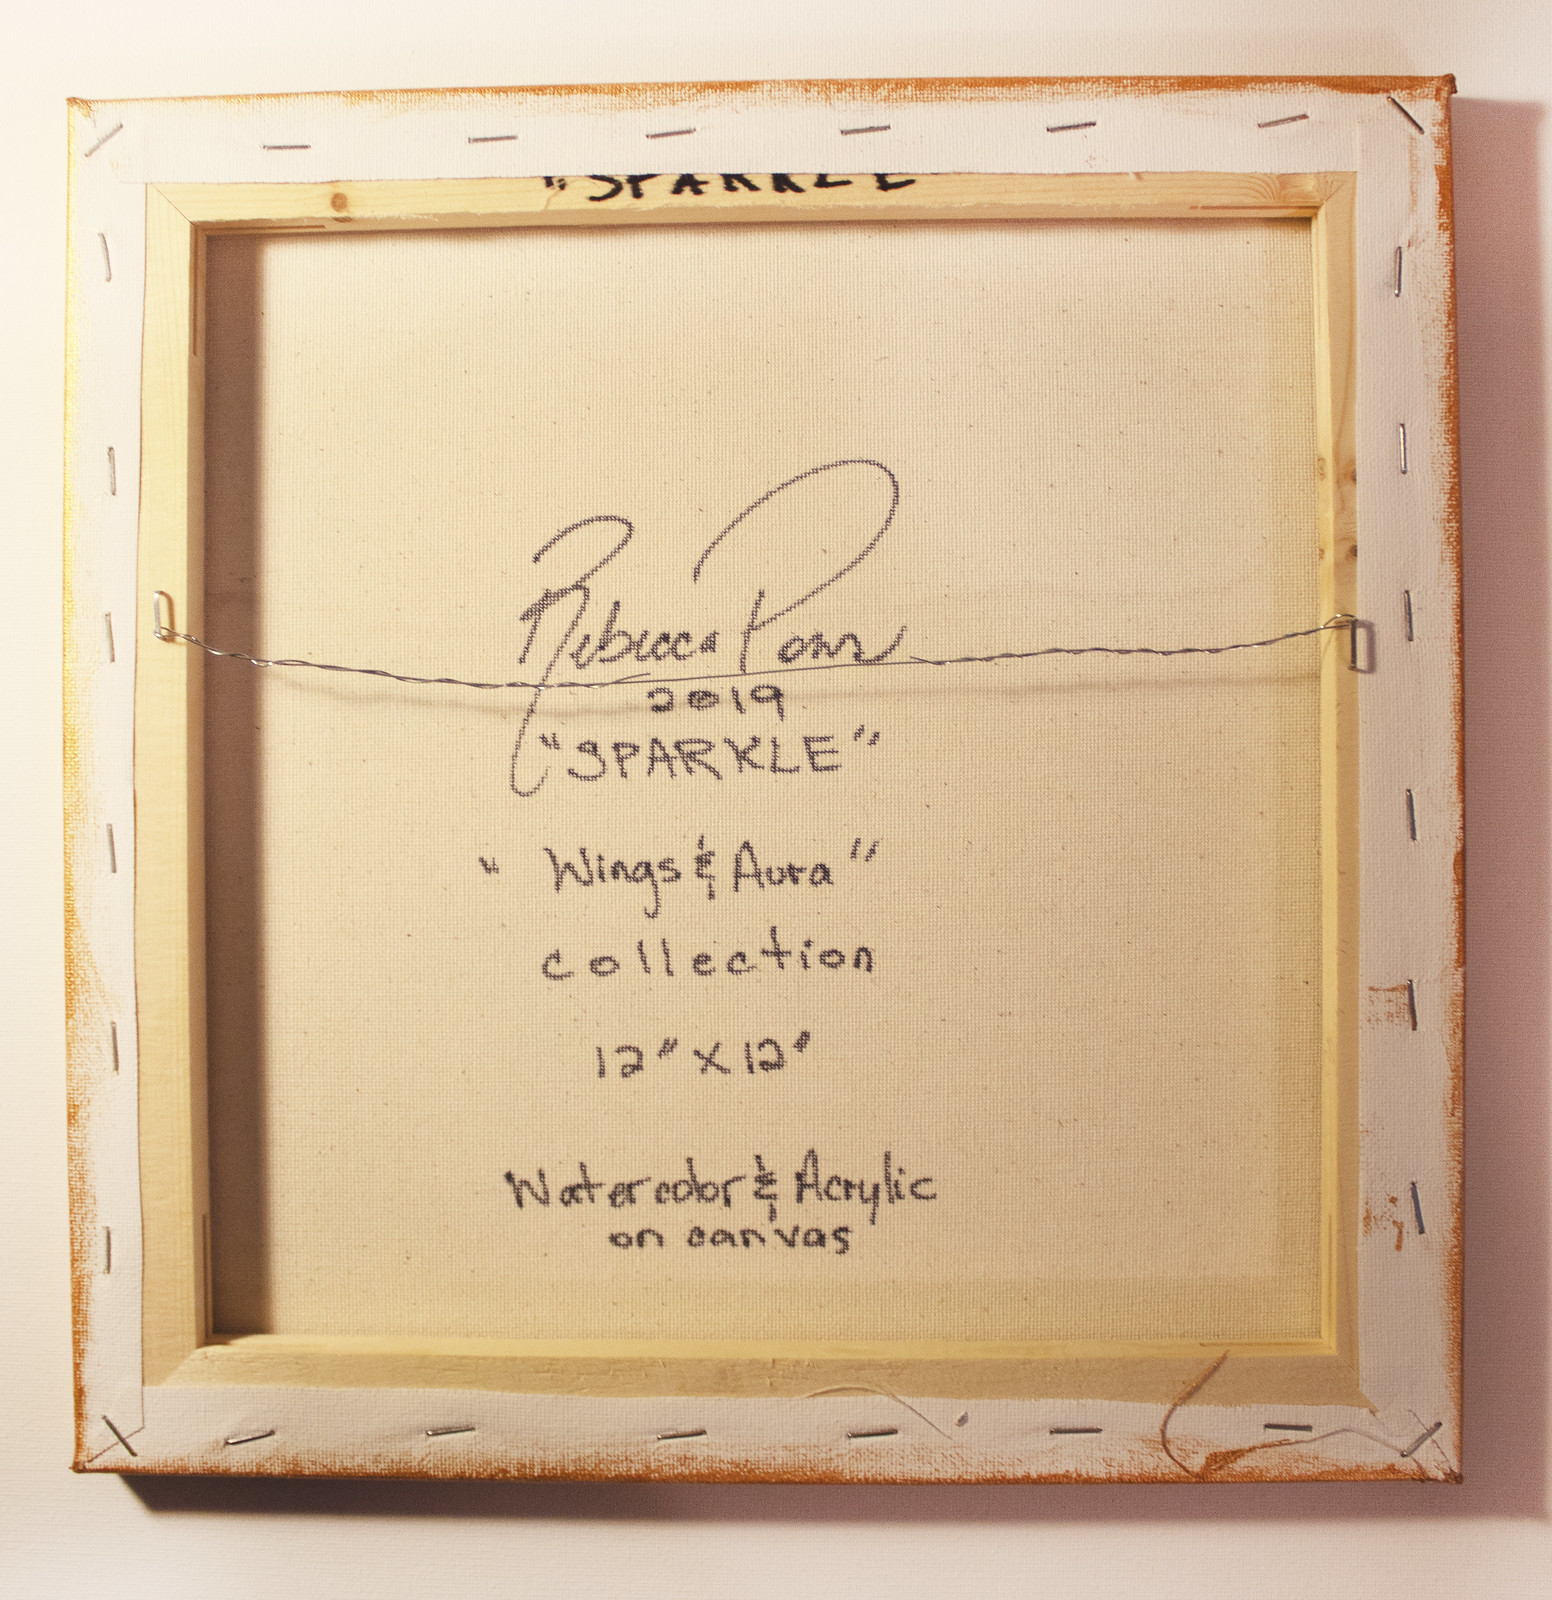 "SPARKLE"
Rebecca
2019
"SPARKLE"
"Wings & Aura"
collection
12" x 12"
Watercolor & Acrylic
on canvas